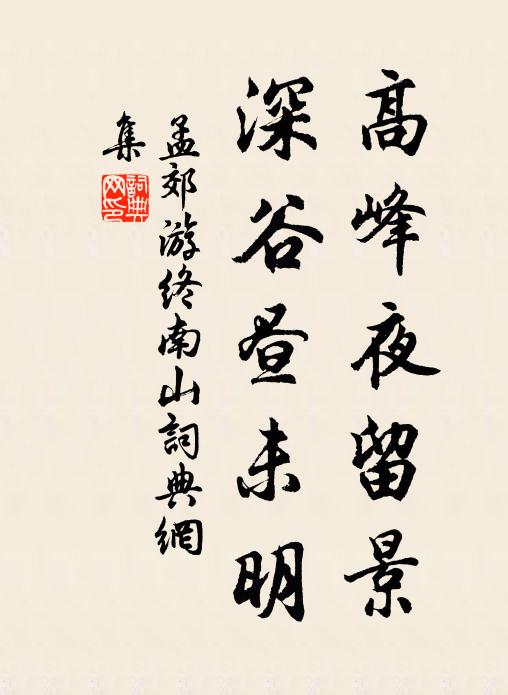 高峰夜留景
深谷昼未明
孟郊游终南山詞典網
集
詞典
网印